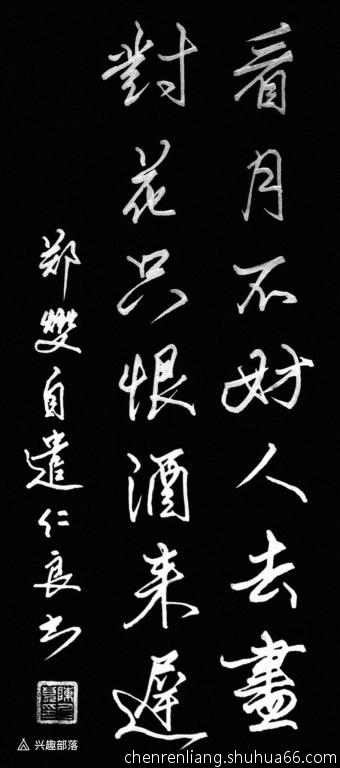 看月不妨人去盡
對花只恨酒来遲
郑燮自遣仁良书
兴趣部落
chenrenliang.shuhua66.com